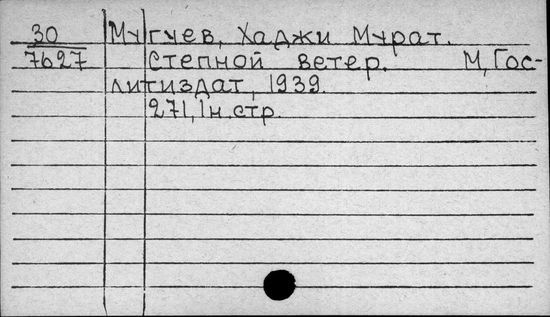 30 Мугуев, Хаджи Мурат.
7627 Степной ветер. М, Гос-
литиздат, 1939.
271, 1н.стр.